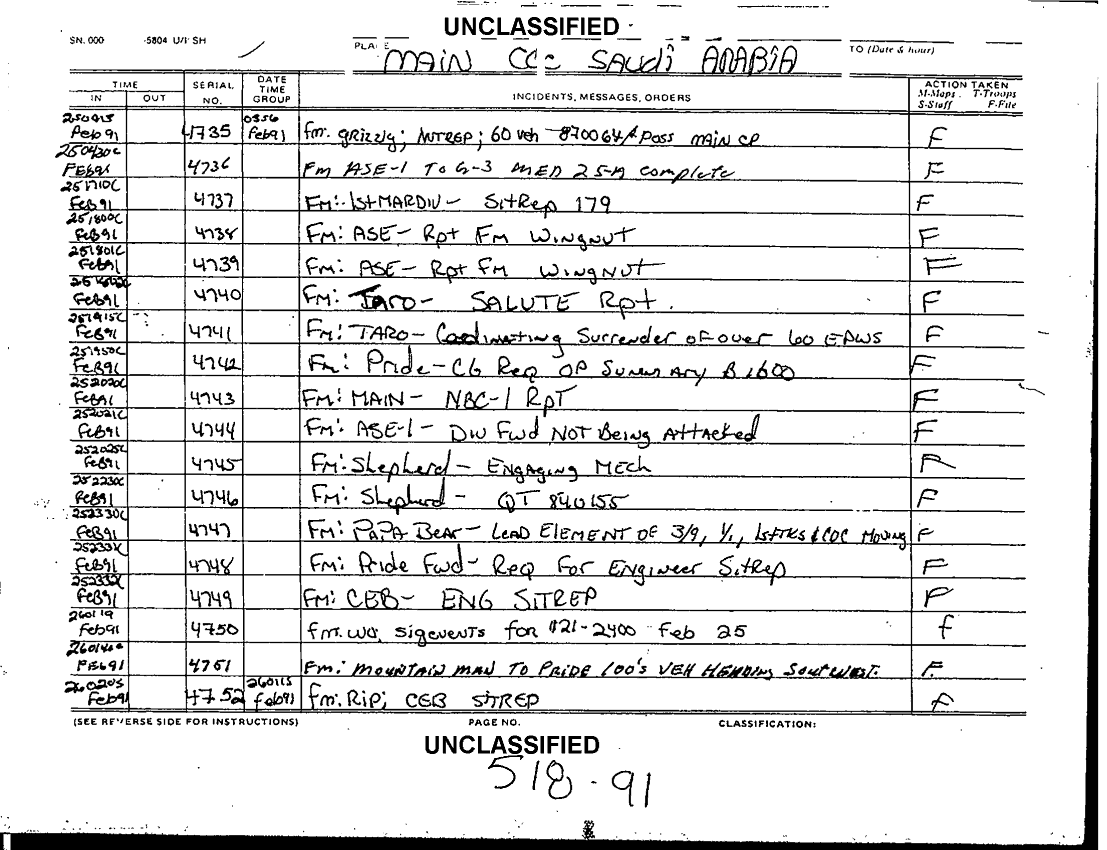 UNCLASSIFIED
SN. 000 5804 U/I SH PLACE MAIN CCC SAUDI ARABIA TO (Date & hour)
TIME SERIAL NO. DATE TIME GROUP INCIDENTS, MESSAGES, ORDERS ACTION TAKEN
IN OUT M-Maps T-Troops
S-Staff F-File
Feb 91 4735 0356 Feb 91 fm. grizzly; INTREP; 60 veh 870064 Pass MAIN CP F
250430C FEB91 4736 Fm ASE-1 To G-3 MED complete F
251710C FEB91 4737 FM: 1stMARDIV - SitRep 179 F
251800C FEB91 4738 FM: ASE - Rpt Fm WINGNUT F
251801C FEB91 4739 FM: ASE - Rpt Fm WINGNUT F
FEB91 4740 FM: TARO - SALUTE Rpt. F
251915C FEB91 4741 FM: TARO - Coordinating Surrender of over 60 EPWS F
251950C FEB91 4742 FM: Pride - CG Req OP Summary B 1600 F
252020C FEB91 4743 FM: MAIN - NBC-1 RPT F
252021C FEB91 4744 FM: ASE-1 - Div Fwd NOT Being Attacked F
252025C FEB91 4745 FM: Shepherd - ENGAGING Mech F
252230C FEB91 4746 FM: Shepherd - QT 840155 F
252330C FEB91 4747 FM: PAPA BEAR - LEAD ELEMENT OF 3/9, 1/1, 1stTKS & COC MOVING F
FEB91 4748 FM: Pride Fwd - Req For Engineer SitRep F
FEB91 4749 FM: CEB - ENG SITREP F
260119 Feb91 4750 fm. WO, sigevents for 2400 Feb 25 f
FEB91 4751 Fm: MOUNTAIN MAN TO PRIDE 100's VEH HEADING SOUTHWEST. F.
260205 Feb91 4752 260115 feb91 fm: RIP; CEB SITREP F
(SEE REVERSE SIDE FOR INSTRUCTIONS) PAGE NO. CLASSIFICATION:
UNCLASSIFIED
518-91